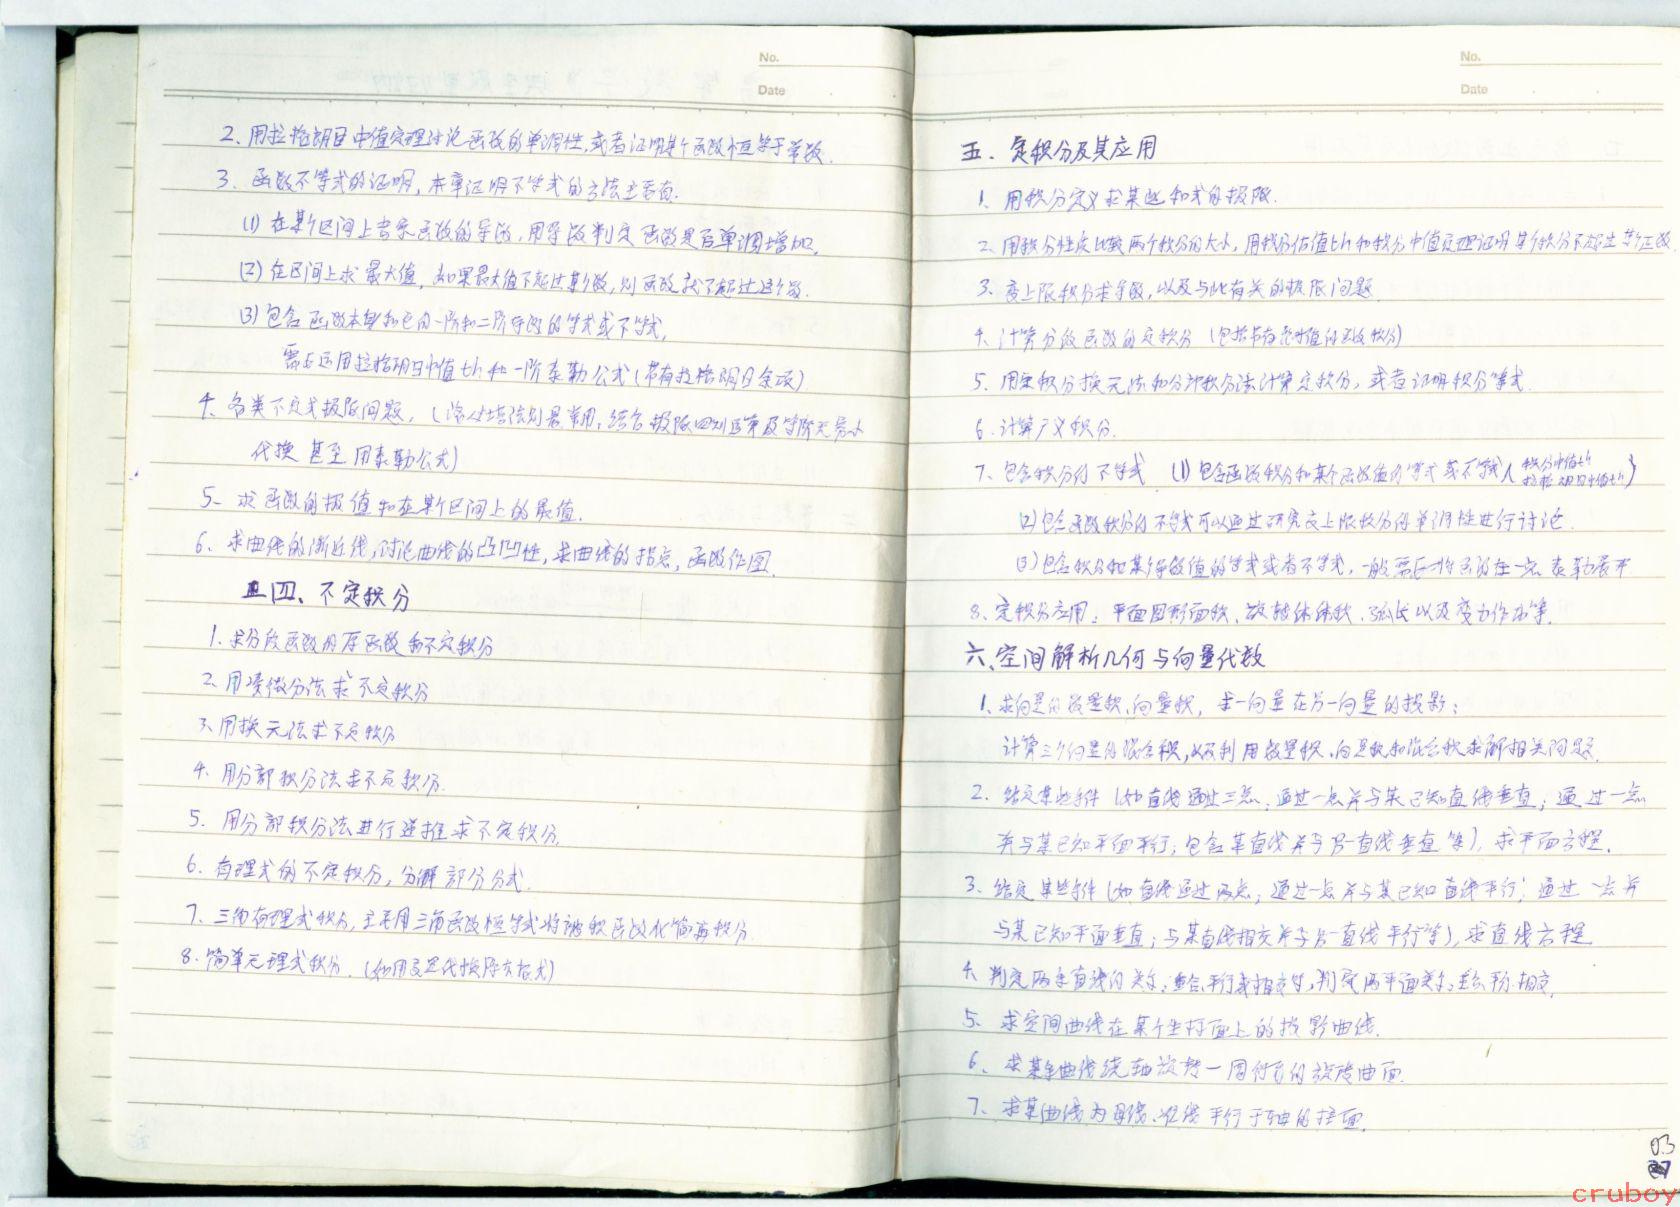 No.
Date
2. 用拉格朗日中值定理讨论函数的单调性,或者证明某个函数恒等于常数.
3. 函数不等式的证明, 本章证明不等式的方法主要有.
(1) 在某个区间上考察函数的导数, 用导数判定函数是否单调增加.
(2) 在区间上求最大值, 如果最大值不超过某个数, 则函数就不超过这个数.
(3) 包含函数本身和它的一阶和二阶导数的等式或不等式,
需要运用拉格朗日中值th和一阶泰勒公式(带有拉格朗日余项)
4. 各类不定式极限问题. (洛必塔法则最常用, 结合极限四则运算及等阶无穷小
代换 甚至用泰勒公式)
5. 求函数的极值和在某个区间上的最值.
6. 求曲线的渐近线, 讨论曲线的凸凹性, 求曲线的拐点, 函数作图.
四、不定积分
1. 求分段函数的原函数和不定积分
2. 用凑微分法求不定积分
3. 用换元法求不定积分
4. 用分部积分法求不定积分.
5. 用分部积分法进行递推求不定积分.
6. 有理式的不定积分, 分解部分分式.
7. 三角有理式积分, 主要用三角函数恒等式将被积函数化简再积分
8. 简单无理式积分. (如用变量代换除去根式)
No.
Date
五. 定积分及其应用
1. 用积分定义求某些和式的极限.
2. 用积分性质比较两个积分的大小, 用积分估值th和积分中值定理证明某个积分不超过某个正数
3. 变上限积分求导数, 以及与此有关的极限问题
4. 计算分段函数的定积分 (包括带有绝对值的函数积分)
5. 用定积分换元法和分部积分法计算定积分, 或者证明积分等式.
6. 计算广义积分.
7. 包含积分的不等式 (1) 包含函数积分和某个函数值的等式或不等式 (积分中值th 拉格朗日中值th)
(2) 包含函数积分的不等式可以通过研究变上限积分的单调性进行讨论.
(3) 包含积分和某导数值的等式或者不等式, 一般需要将函数在一点泰勒展开
8. 定积分应用: 平面图形面积、旋转体体积、弧长以及变力作功等.
六、空间解析几何与向量代数
1. 求向量的数量积、向量积, 求一向量在另一向量的投影;
计算三个向量的混合积, 以及利用数量积、向量积和混合积求解相关问题.
2. 给定某些条件 (如直线通过三点; 通过一点并与某已知直线垂直; 通过一点
并与某已知平面平行; 包含某直线并与另一直线垂直等), 求平面方程.
3. 给定某些条件 (如直线通过两点; 通过一点并与某已知直线平行; 通过一点并
与某已知平面垂直; 与某直线相交并与另一直线平行等), 求直线方程
4. 判定两条直线的关系: 重合平行或相交等, 判定两平面关系: 重合平行相交.
5. 求空间曲线在某个坐标面上的投影曲线.
6. 求某条曲线绕轴旋转一周所得的旋转曲面.
7. 求某曲线为母线、准线平行于轴的柱面.
03
cruboy